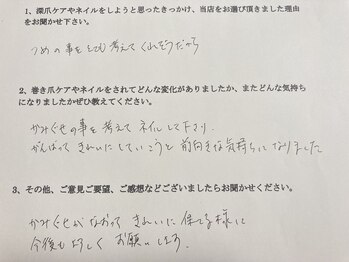 1、深爪ケアやネイルをしようと思ったきっかけ、当店をお選び頂きました理由
をお聞かせ下さい。
つめの事をとても考えてくれそうだから
2、巻き爪ケアやネイルをされてどんな変化がありましたか、またどんな気持ち
になりましたかぜひ教えてください。
かみぐせの事を考えてネイルして下さり、
がんばってきれいにしていこうと前向きな気持ちになりました
3、その他、ご意見ご要望、ご感想などございましたらお聞かせください。
かみぐせがなおってきれいに保てる様に
今後も宜しくお願いします。